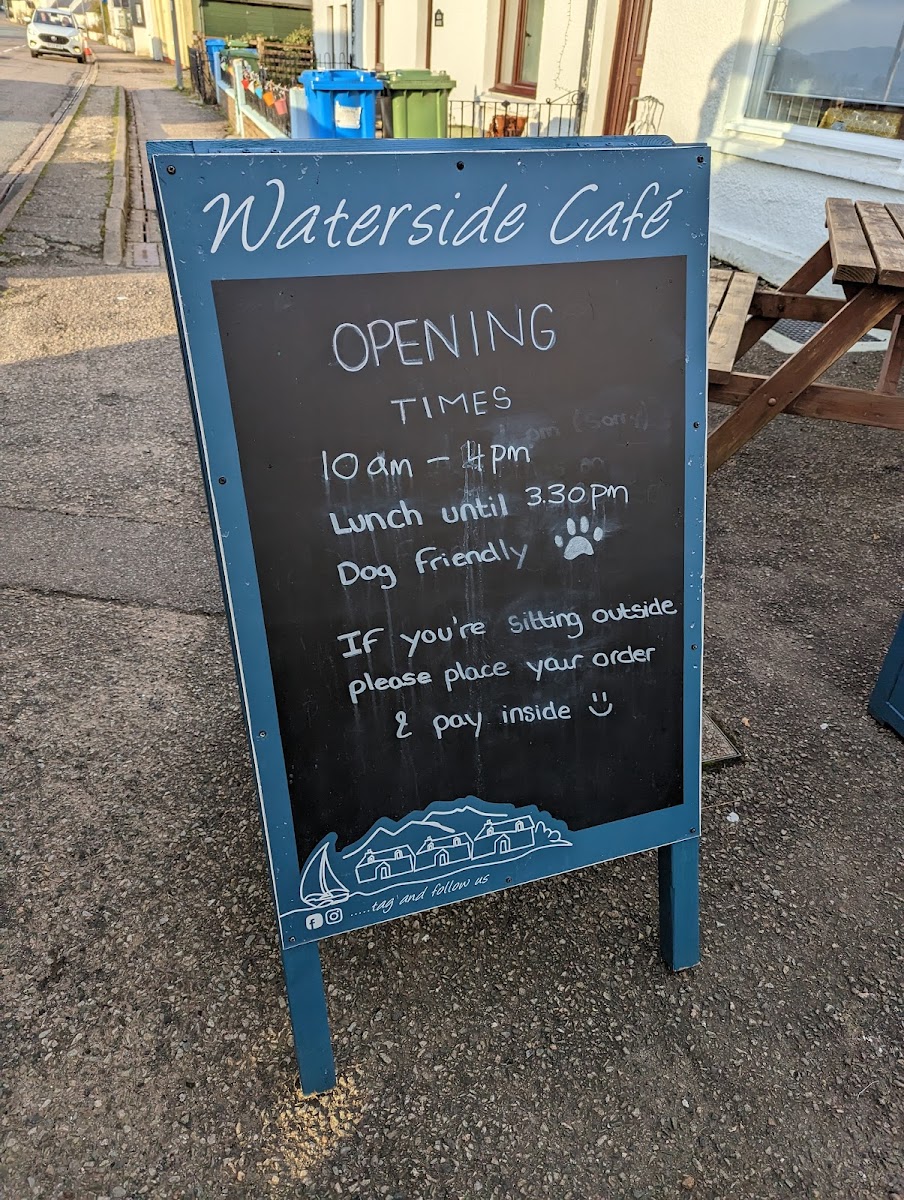 Waterside Café
OPENING
TIMES
10am – 4pm
Lunch until 3.30pm
Dog friendly
If you're sitting outside
please place your order
& pay inside
.....tag and follow us